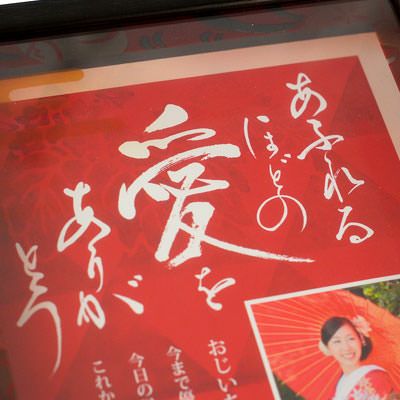 あふれる
ほどの
愛を
ありが
とう
おじいち
今まで優
今日の
これか